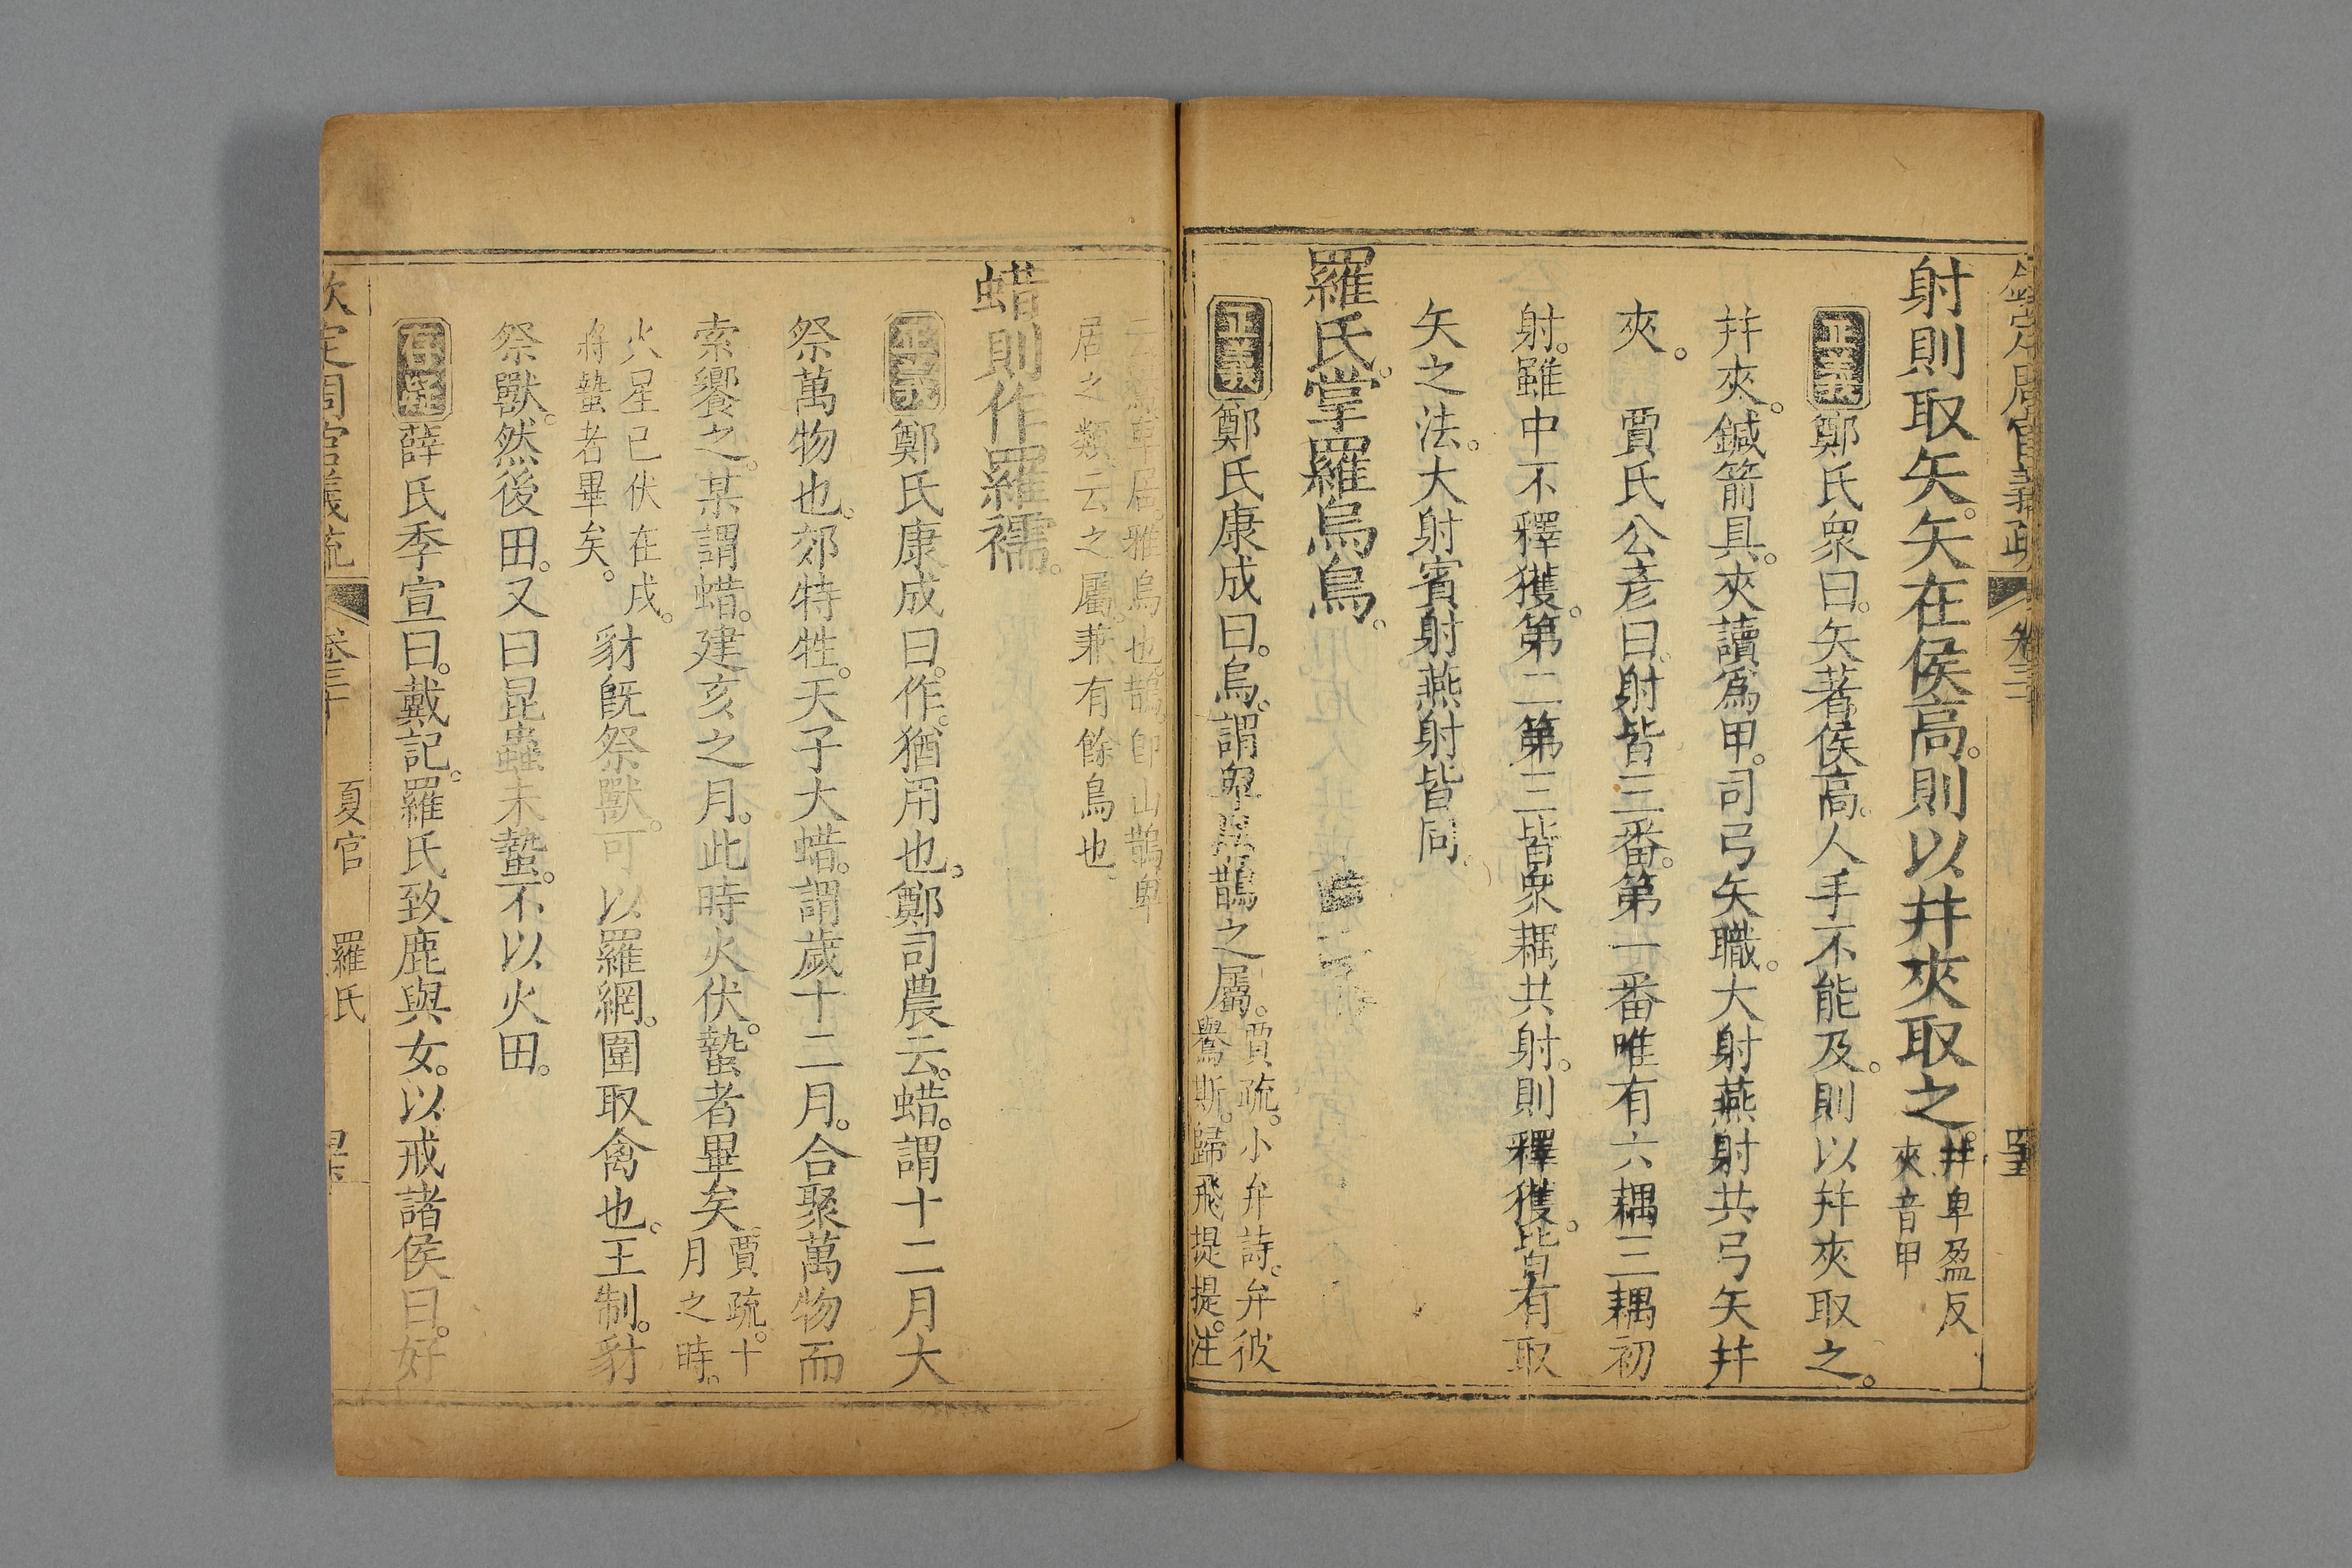 欽定周官義疏 卷三十
射則取矢。矢在侯高。則以幷夾取之。幷卑盈反
夾音甲
正義鄭氏衆曰。矢著侯高。人手不能及。則以幷夾取之。
幷夾。鍼箭具。夾讀爲甲。司弓矢職。大射燕射共弓矢幷
夾。 賈氏公彥曰。射皆三番。第一番唯有六耦三耦初
射。雖中不釋獲。第二第三皆衆耦共射。則釋獲。皆有取
矢之法。大射賓射燕射皆同。
羅氏。掌羅烏鳥。
正義鄭氏康成曰。烏。謂卑居鵲之屬。賈疏。小弁詩。弁彼
鸒斯。歸飛提提。注
云 卑居。雅烏也。鵲。卽山鵲卑
居之類。云之屬。兼有餘鳥也。
蜡則作羅襦。
正義鄭氏康成曰。作。猶用也。鄭司農云。蜡。謂十二月大
祭萬物也。郊特牲。天子大蜡。謂歲十二月。合聚萬物而
索饗之。某謂蜡。建亥之月。此時火伏。蟄者畢矣賈疏。十
月之時。
火星已伏在戌。
將蟄者畢矣。豺旣祭獸。可以羅網。圍取禽也。王制。豺
祭獸。然後田。又曰昆蟲未蟄。不以火田。
存疑薛氏季宣曰。戴記。羅氏致鹿與女。以戒諸侯曰。好
欽定周官義疏 卷三十 夏官 羅氏